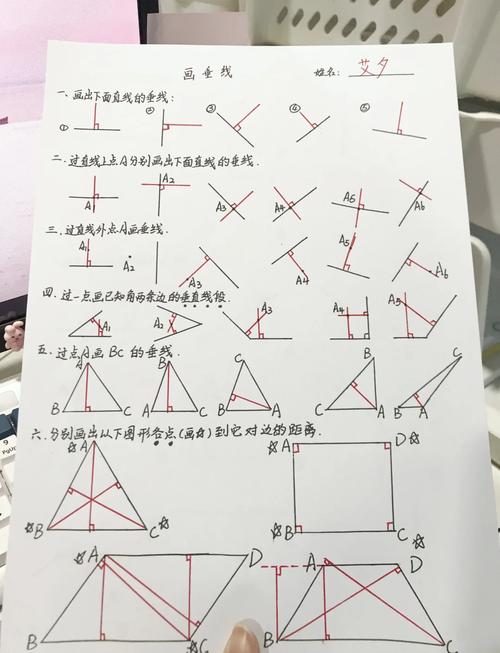 画垂线 姓名: 艾夕
一、画出下面直线的垂线:
① ② ③ ④ ⑤
二、过直线上点A分别画出下面直线的垂线.
A1 A2 A3 A4 A5 A6
三、过直线外点A画垂线.
A1 A2 A3 A4 A5 A6
四、过一点画已知角两条边的垂直线段.
A1 A2 A3 A4 A5
五、过点A画BC的垂线.
A B C B A C C B A B C A C B A
六、分别画出以下图形各点(画☆)到它对边的距离.
☆A ☆A D☆
☆B C☆ ☆B C☆
☆A D A D
B ☆C B C